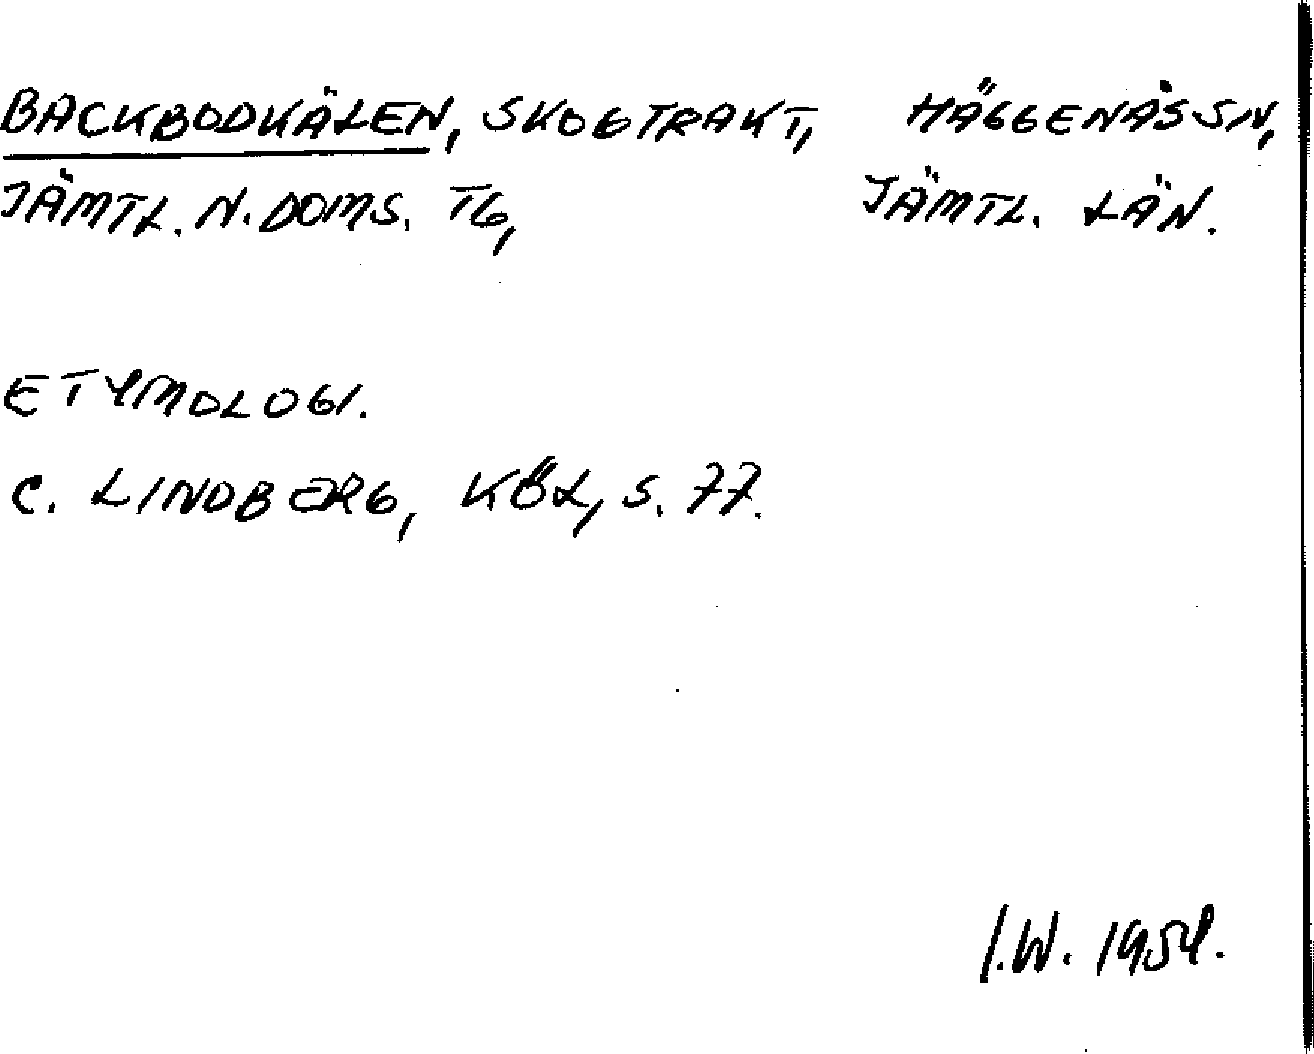 BACKBODKÄLEN, SKOGTRAKT, HÄGGENÅS SN,
JÄMTL. N. DOMS. TG, JÄMTL. LÄN.
ETYMOLOGI.
C. LINDBERG, KÖL, S. 77.
I.W. 1954.